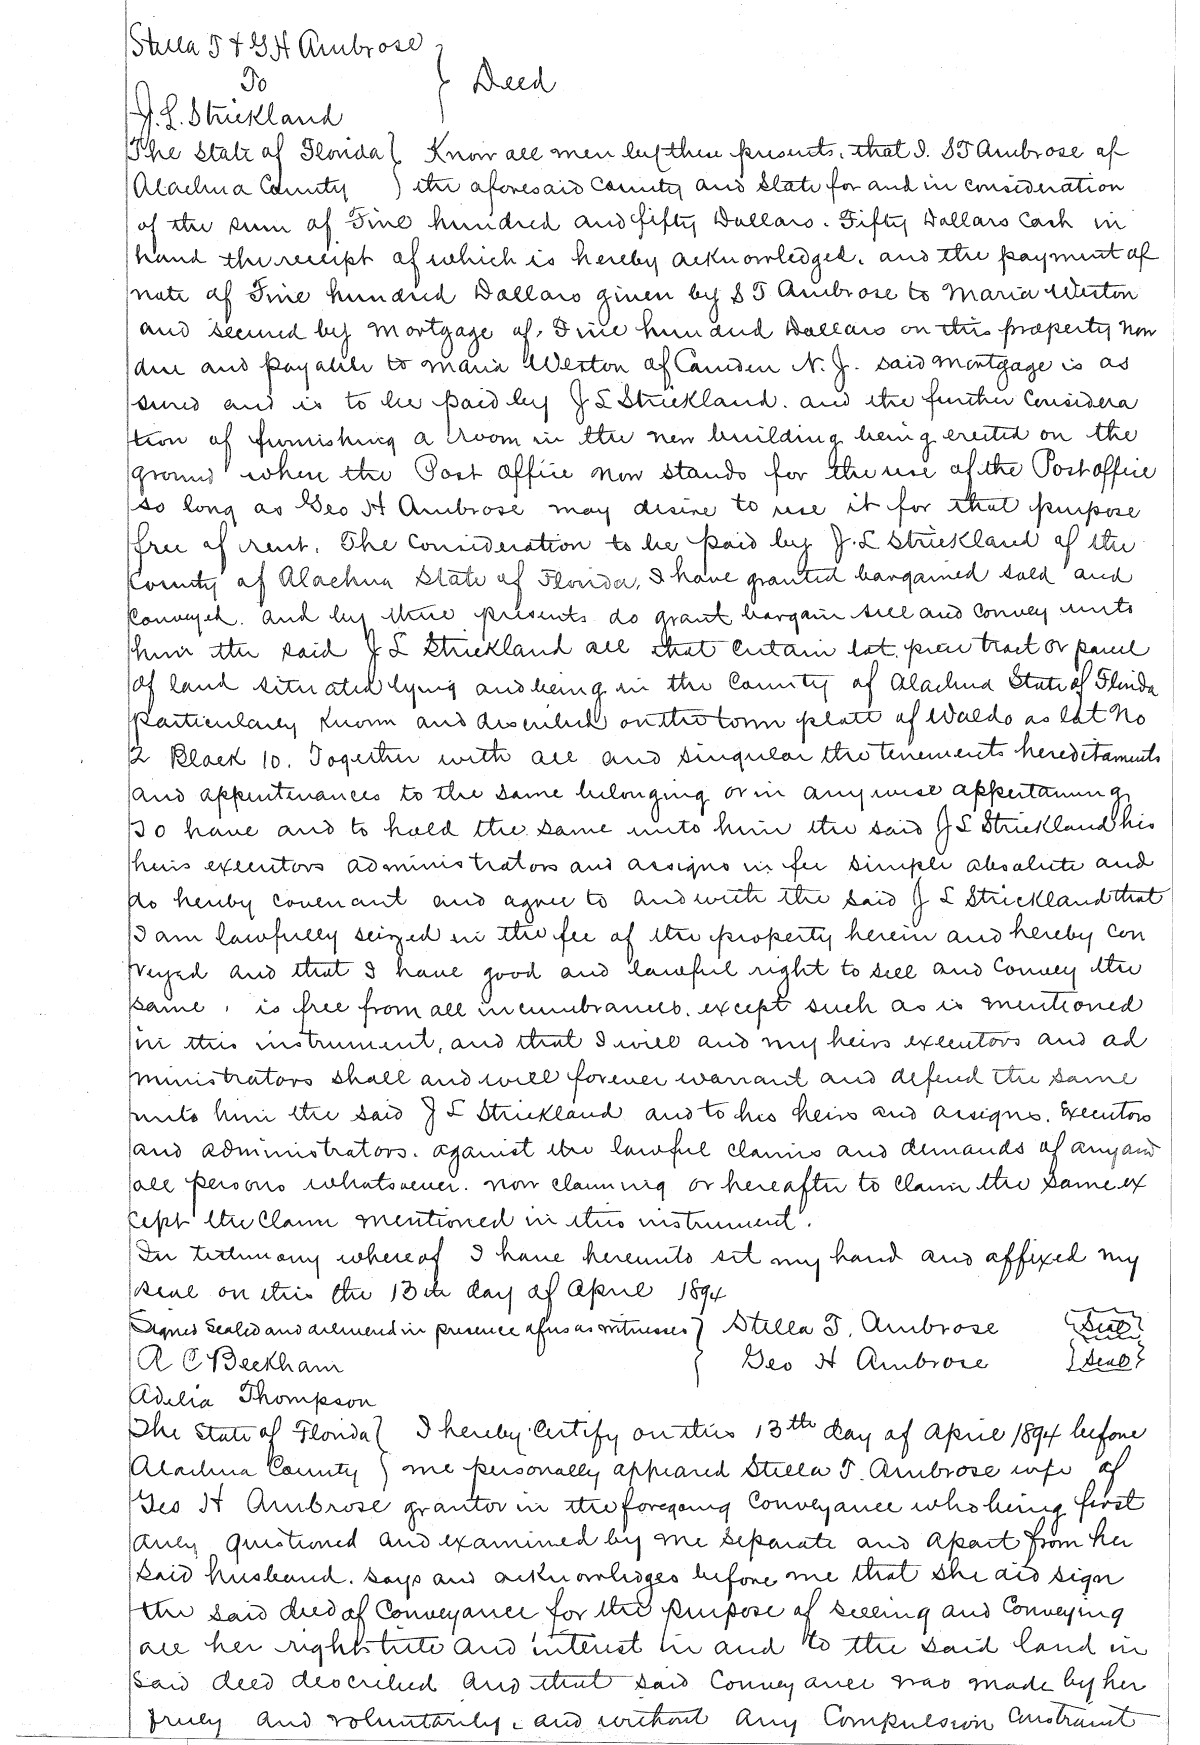 Stella T & G H Ambrose
To } Deed
J. L. Strickland
The State of Florida } Know all men by these presents, that I. S T Ambrose of
Alachua County } the aforesaid County and State for and in consideration
of the sum of Five hundred and fifty Dollars. Fifty Dollars Cash in
hand the receipt of which is hereby acknowledged. and the payment of
note of Five hundred Dollars given by S T Ambrose to Maria Weston
and secured by mortgage of. Five hundred Dollars on this property now
due and payable to Maria Weston of Camden N. J. said mortgage is as
sured and is to be paid by J L Strickland. and the further Considera
tion of furnishing a room in the new building being erected on the
ground where the Post office now stands for the use of the Post office
so long as Geo H Ambrose may desire to use it for that purpose
free of rent. The Consideration to be paid by J. L Strickland of the
County of Alachua State of Florida, I have granted bargained sold and
Conveyed. and by these presents do grant bargain sell and convey unto
him the said J L Strickland all that certain lot piece tract or parcel
of land situated lying and being in the County of Alachua State of Florida
particularly known and described on the town platt of Waldo as lot No
2 Block 10. Together with all and singular the tenements hereditaments
and appurtenances to the same belonging or in any wise appertaining
To have and to hold the same unto him the said J L Strickland his
heirs executors administrators and assigns in fee simple absolute and
do hereby covenant and agree to and with the said J L Strickland that
I am lawfully seized in the fee of the property herein and hereby con
veyed and that I have good and lawful right to sell and convey the
same, is free from all incumbrances. except such as is mentioned
in this instrument, and that I will and my heirs executors and ad
ministrators shall and will forever warrant and defend the same
unto him the said J L Strickland and to his heirs and assigns. Executors
and administrators. against the lawful claims and demands of any and
all persons whatsoever. now claiming or hereafter to claim the same ex
cept the Claim mentioned in this instrument.
In testimony whereof I have hereunto set my hand and affixed my
seal on this the 13th day of April 1894
Signed Sealed and delivered in presence of us as witnesses } Stella T. Ambrose {Seal}
A C Beckham } Geo H Ambrose {Seal}
Adelia Thompson
The State of Florida } I hereby Certify on this 13th day of April 1894 before
Alachua County } me personally appeared Stella T. Ambrose wife of
Geo H Ambrose grantor in the foregoing Conveyance who being first
duly questioned and examined by me separate and apart from her
said husband. says and acknowledges before me that she did sign
the said deed of Conveyance for the purpose of selling and Conveying
all her right title and interest in and to the said land in
said deed described and that said Conveyance was made by her
freely and voluntarily. and without any Compulsion Constraint